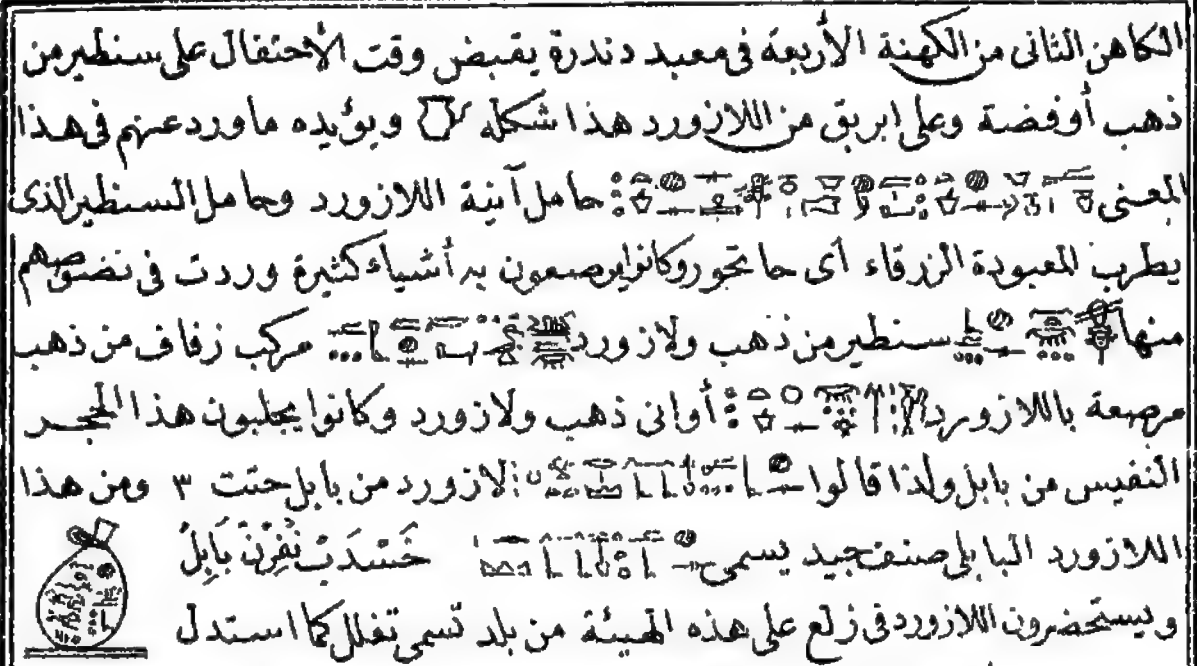 الكاهن الثانى من الكهنة الأربعة فى معبد دندرة يقبض وقت الأحتفال على سنطير من
ذهب أو فضة وعلى ابريق من اللازورد هذا شكله ويؤيده ما ورد عنهم فى هذا
المعنى حامل آنية اللازورد وحامل السنطير الذى
يطرب المعبودة الزرقاء أى حاتحور وكانوا يرصعون به أشياء كثيرة وردت فى نصوصهم
منها سنطير من ذهب ولازورد مركب زفاف من ذهب
مرصعة باللازورد أوانى ذهب ولازورد وكانوا يجلبون هذا الحجر
النفيس من بابل ولذا قالوا لازورد من بابل حتت ٣ ومن هذا
اللازورد البابلى صنف جيد يسمى خَسْدَبْ نُفِرْنْ بَابِلُ
ويستحضرون اللازورد فى زلع على هذه الهيئة من بلد تسمى تفلل كما استدل